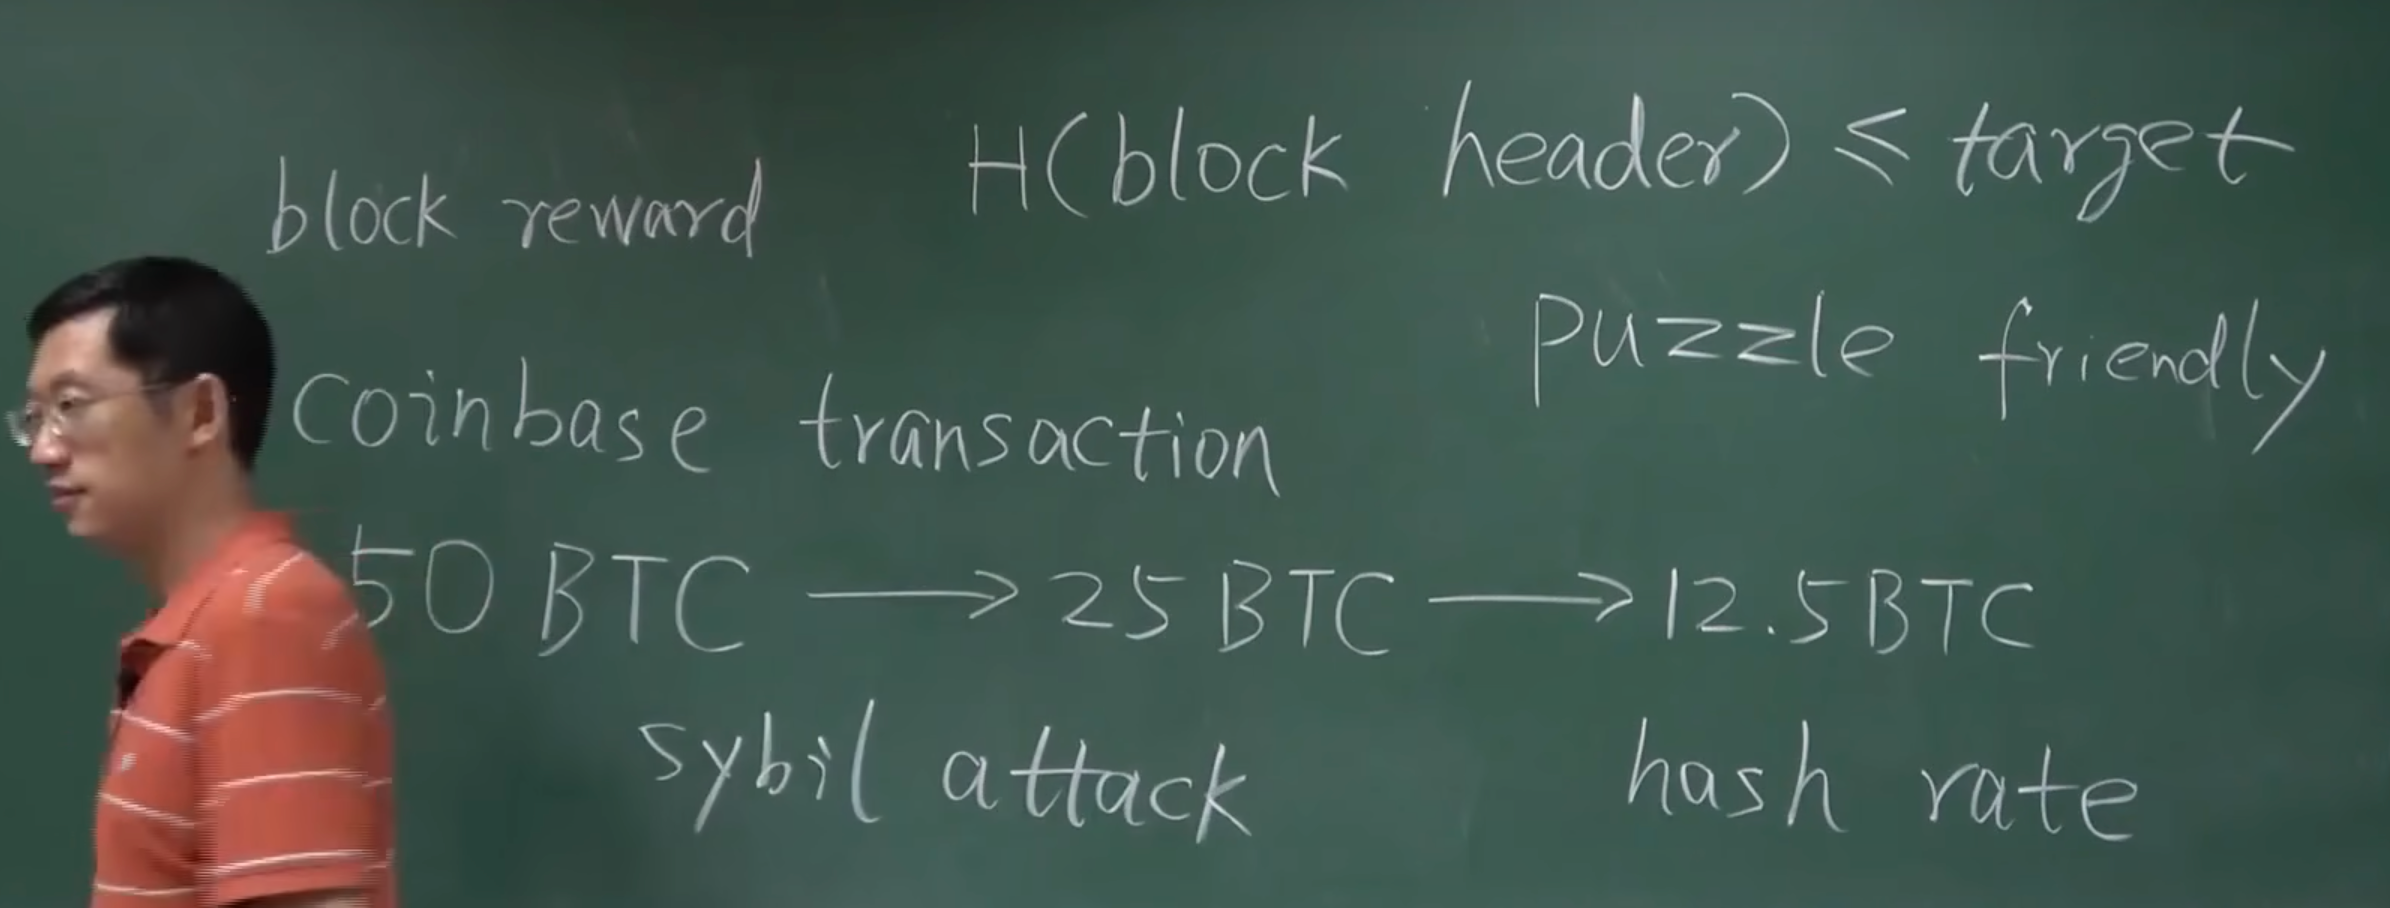 H(block header) ≤ target
block reward
puzzle friendly
coinbase transaction
50 BTC → 25 BTC → 12.5 BTC
sybil attack
hash rate